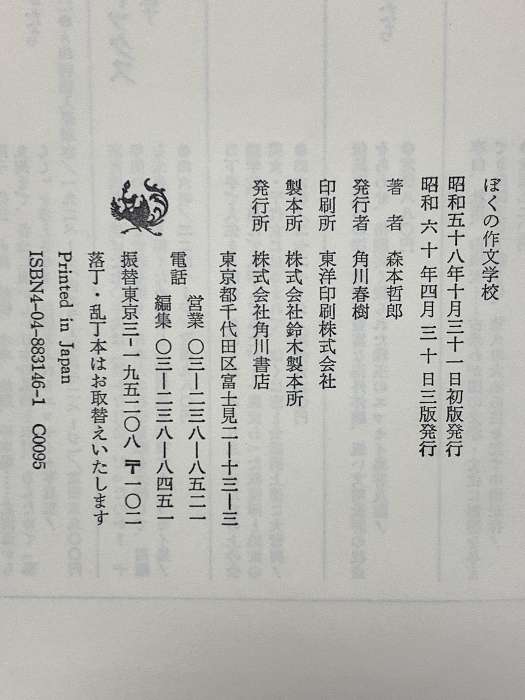 ぼくの作文学校
昭和五十八年十月三十一日初版発行
昭和六十年四月三十日三版発行
著者 森本哲郎
発行者 角川春樹
印刷所 東洋印刷株式会社
製本所 株式会社鈴木製本所
発行所 株式会社角川書店
東京都千代田区富士見二―十三―三
電話 営業 〇三―二三八―八五二一
編集 〇三―二三八―八四五一
振替東京三―一九五二〇八 〒一〇二
落丁・乱丁本はお取替えいたします
Printed in Japan
ISBN4-04-883146-1 C0095